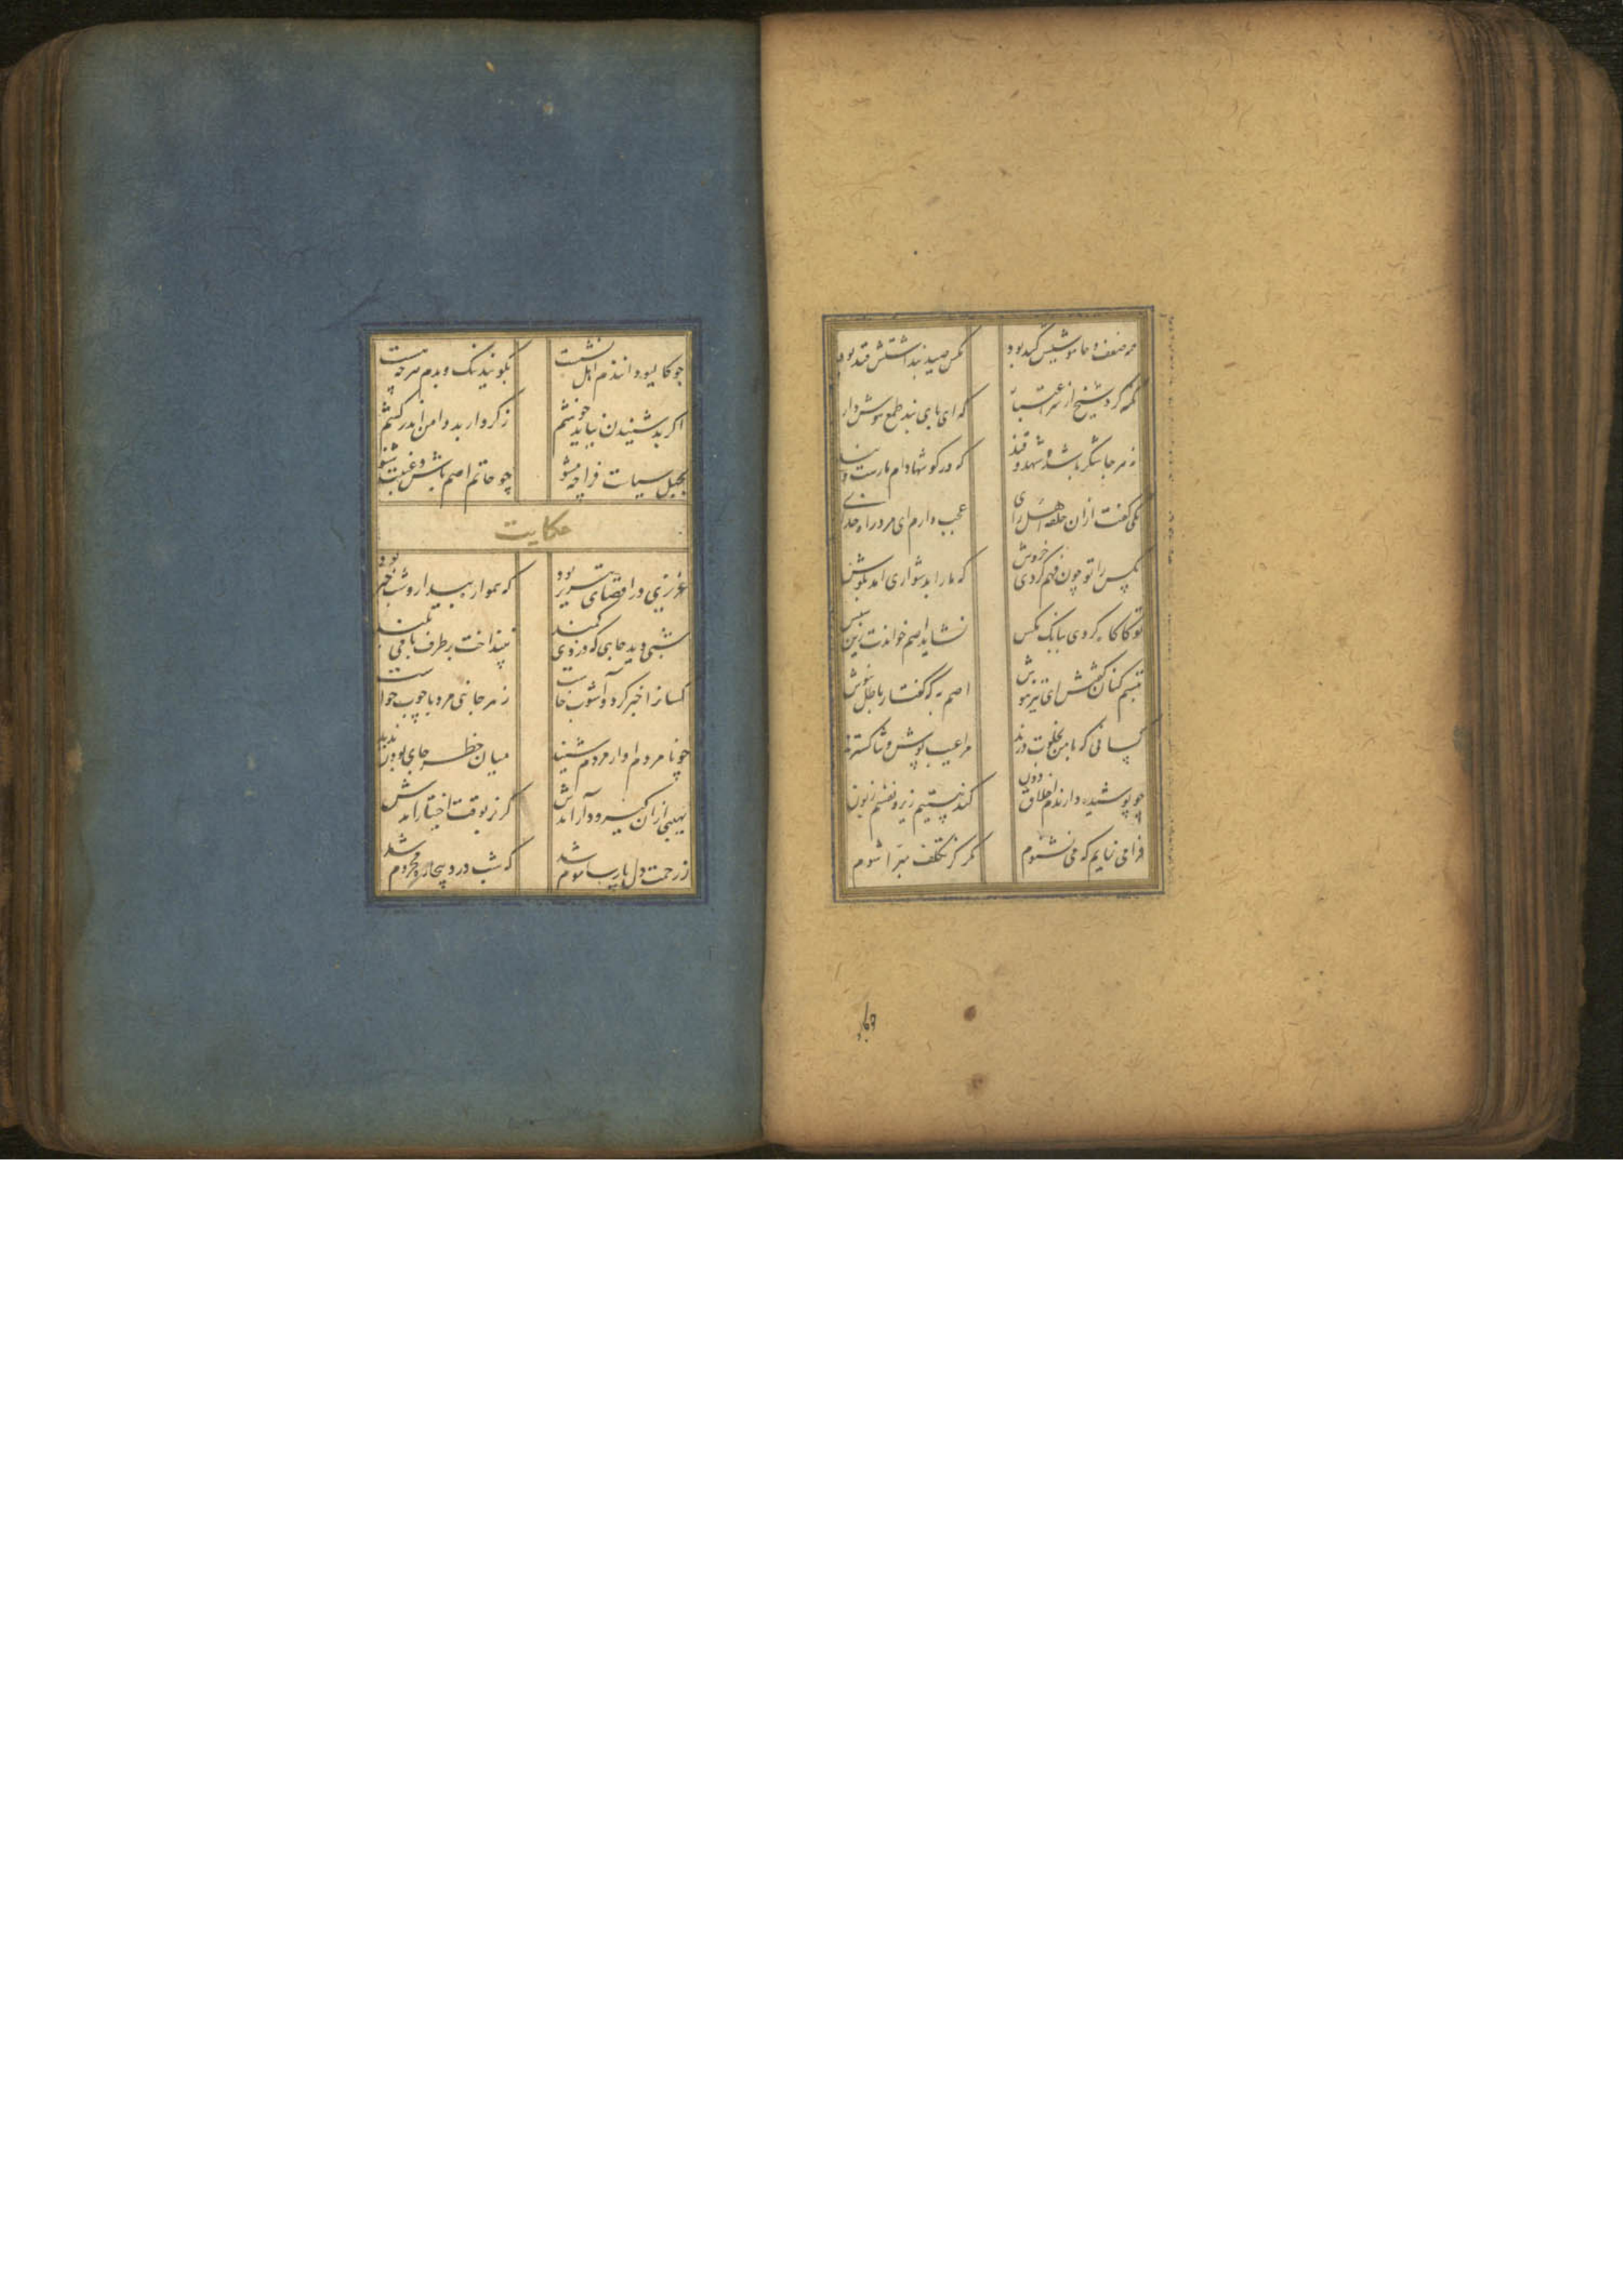 همه ضعف و خاموشیش کید بود مکس قید پنداشتش قید بود
نکه کرد شیخ از سر اعتبار که ای پای بند طمع هوش دار
نه هر جا شکر باشد و شهد و قند که در کوشها دام یارست و بند
یکی کفت از ان حلقه اهل رای عجب دارم ای مرد راه خدای
مکس را تو چون فهم کردی خروش که ما را بدشواری امد بکوش
تو کاکاه کردی ببانک مکس نشاید اصم خواندنت زین سپس
تبسم کنان کفتش ای تیزهوش اصم به که کفتار باطل نیوش
کسانی که با من بخلوت درند مرا عیب پوش و ثنا کسترند
چو پوشیده دارندم اخلاق دون کند هستیم زیر و نفسم زبون
فرا می نمایم که می نشنوم مکر کز تکلف مبرا شوم
چو کالیوه دانندم اهل نشست بکویند نیک و بدم هرچه هست
اکر بد شنیدن نیاید خوشم ز کردار بد دامن اندر کشم
بحبل سپاست فرا چه مشو چو حاتم اصم باش و غیبت شنو
حکایت
عزیزی در اقصای تبریز بود که همواره بیدار و شب خیز بود
شبی دید جایی که دزدی کمند بپنداخت بر طرف بامی بلند
کسانرا خبر کرد و آشوب خاست ز هر جانبی مرد با چوب خواست
چو نامردم اواز مردم شنید میان خطر جای بودن ندید
نهیبی از ان کیر و دار آمدش کریز بوقت اختیار آمدش
ز رحمت دل پارسا موم شد که شب دزد بیچاره محروم شد
چو کا